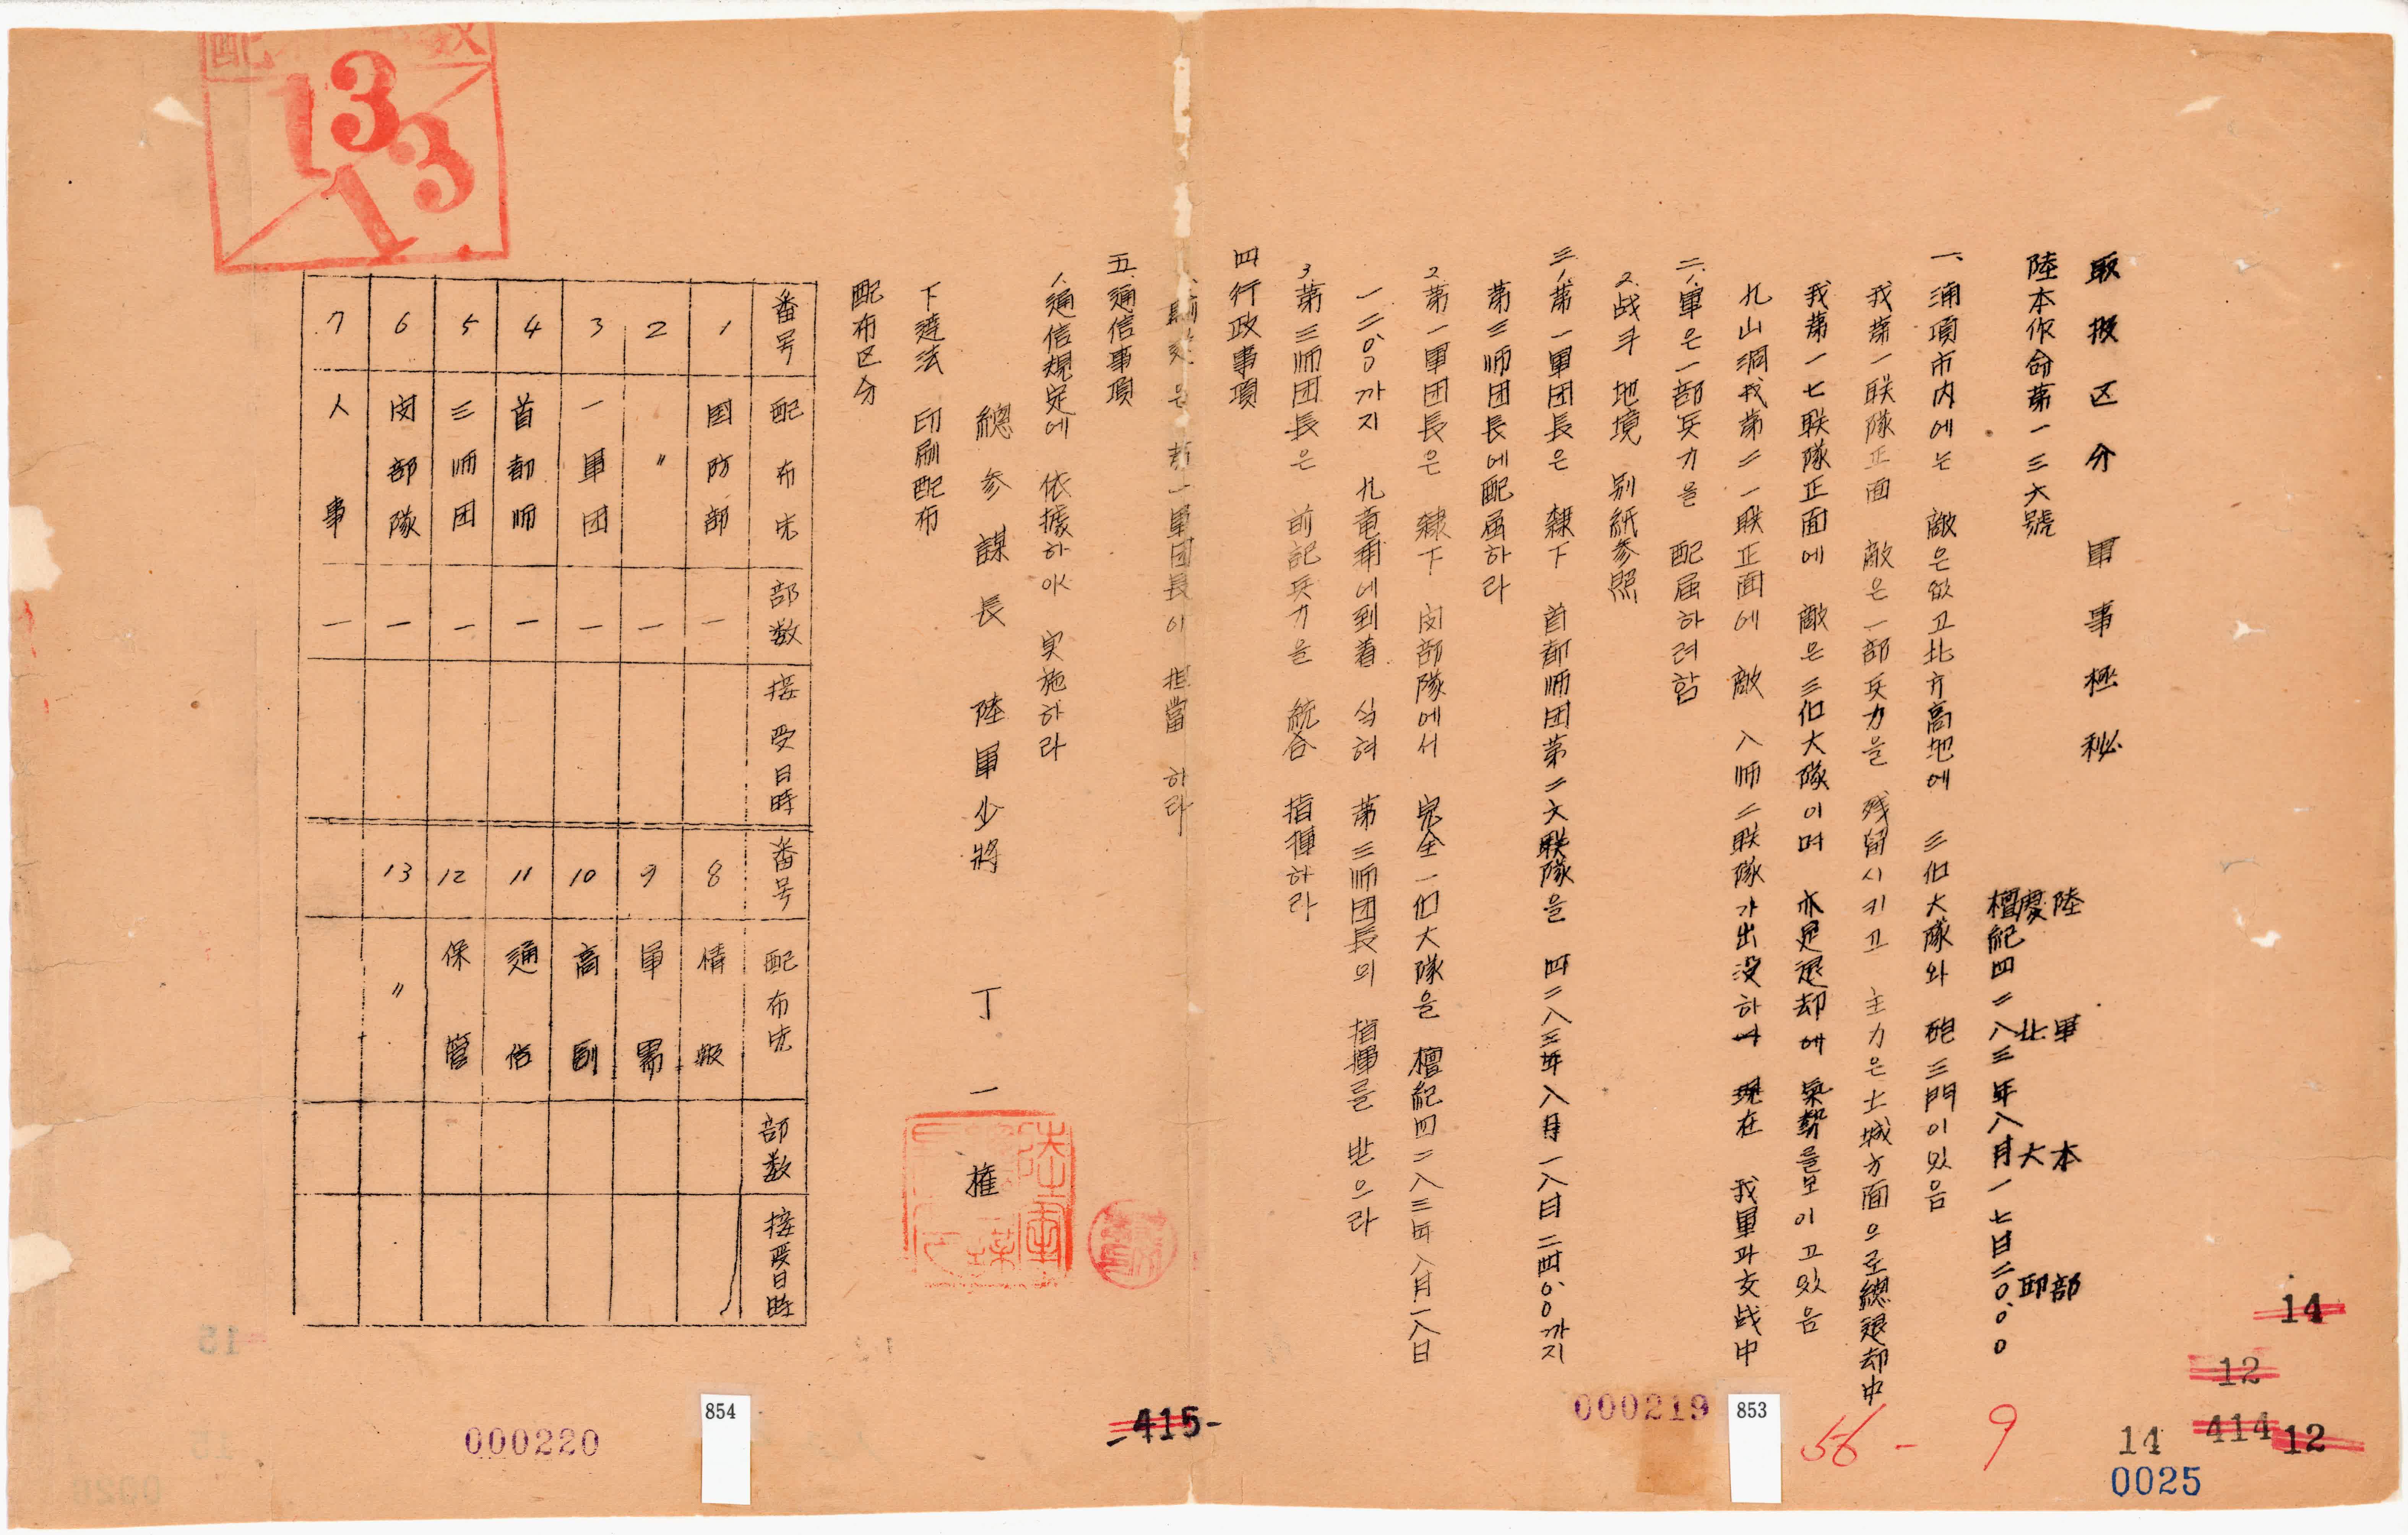 取扱区分 軍事極秘
陸本作命第一三六號
陸軍本部
慶北大邱
檀紀四二八三年八月一七日二〇〇〇
一、浦項市内에는 敵은 없고 北方高地에 三個大隊와 砲三門이 있음
我第一联隊正面 敵은 一部兵力을 残留시키고 主力은 土城方面으로 總退却中
我第一七联隊正面에 敵은 三個大隊이며 亦是退却에 氣勢를 보이고 있음
九山洞 我第二一联正面에 敵 八师二联隊가 出没하야 現在 我軍과 交战中
二、1.軍은 一部兵力을 配屬하려함
2.战斗地境 別紙参照
三、1.第一軍団長은 隷下 首都师団第二六联隊을 四二八三年八月一八日二四〇〇까지
第三师団長에 配屬하라
2.第一軍団長은 隷下 閔部隊에서 完全一個大隊을 檀紀四二八三年八月一八日
一二〇〇까지 九竜浦에 到着 식혀 第三师団長의 指揮를 받으라
3.第三师団長은 前記兵力을 統合 指揮하라
四 行政事項
은 第一軍団長이 担當 하라
五.通信事項
1.通信規定에 依據하야 実施하라
總参謀長 陸軍少將 丁一權
下達法 印刷配布
配布区分
番号 配布先 部数 接受日時 番号 配布先 部数 接受日時
1 国防部 一 8 情報
2 〃 一 9 軍需
3 一軍団 一 10 高副
4 首都师 一 11 通信
5 三师団 一 12 保管
6 閔部隊 一 13 〃
7 人事 一
13
13
14
12
414
12
14
0025
9
56-
853
000219
-415-
854
000220